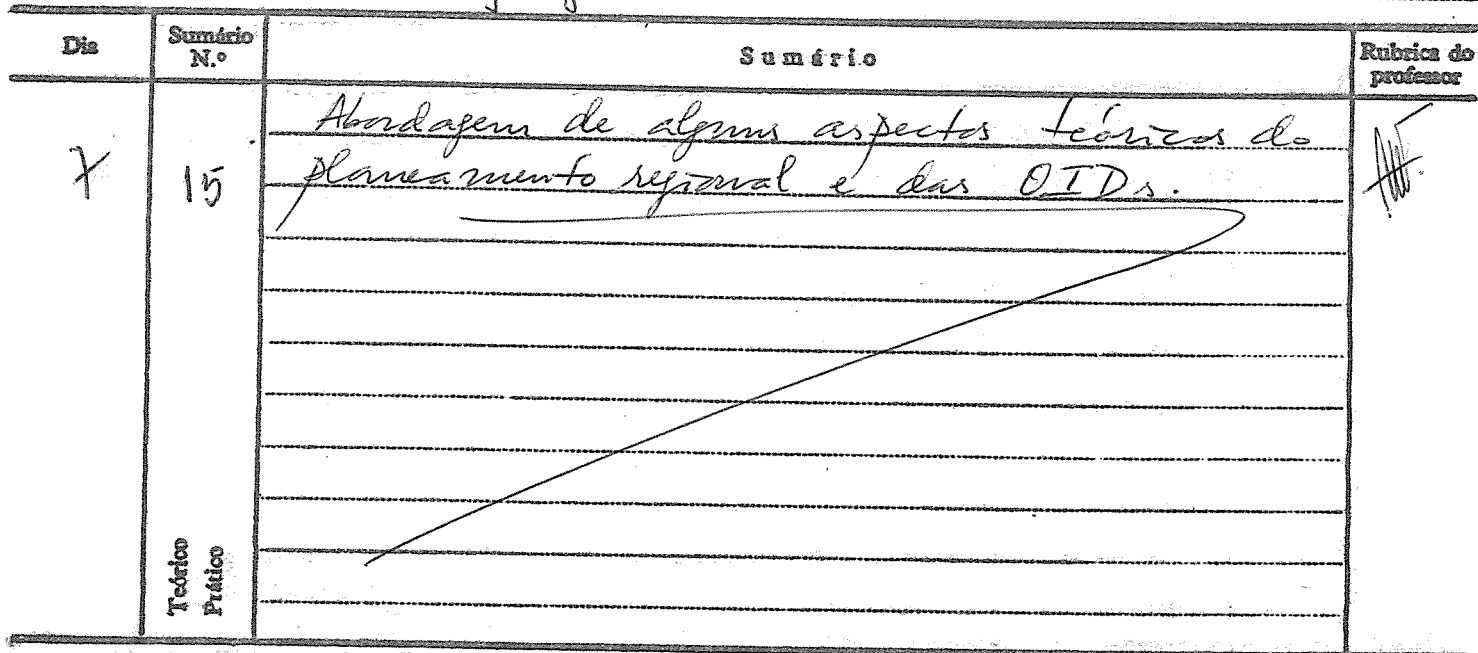 Dia
Sumário N.º
Sumário
Rubrica do professor
7
15
Abordagem de alguns aspectos teóricos do
planeamento regional e das OIDs.
Teórico
Prático